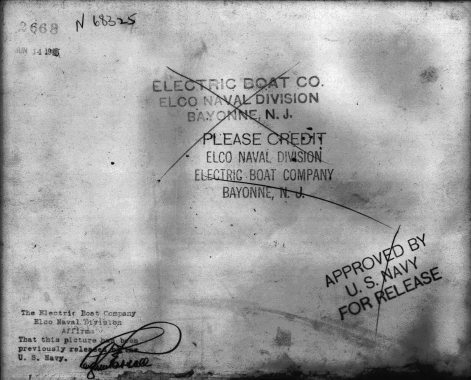 2668
N 68325
JUN 14
ELECTRIC BOAT CO.
ELCO NAVAL DIVISION
BAYONNE, N. J.
PLEASE CREDIT
ELCO NAVAL DIVISION
ELECTRIC BOAT COMPANY
BAYONNE, N. J.
APPROVED BY
U. S. NAVY
FOR RELEASE
The Electric Boat Company
Elco Naval Division
Affirms
That this picture has been
previously released by the
U. S. Navy.